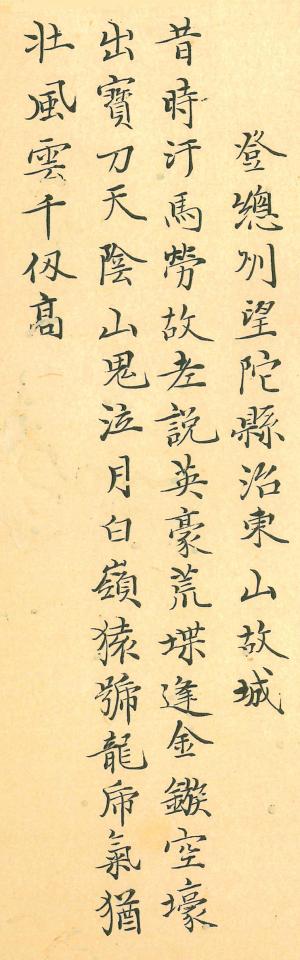 登總州望陀縣治東山故城
昔時汗馬勞故老説英豪荒堞逢金鏃空壕
出寳刀天陰山鬼泣月白嶺猿號龍虎氣猶
壮風雲千仭髙